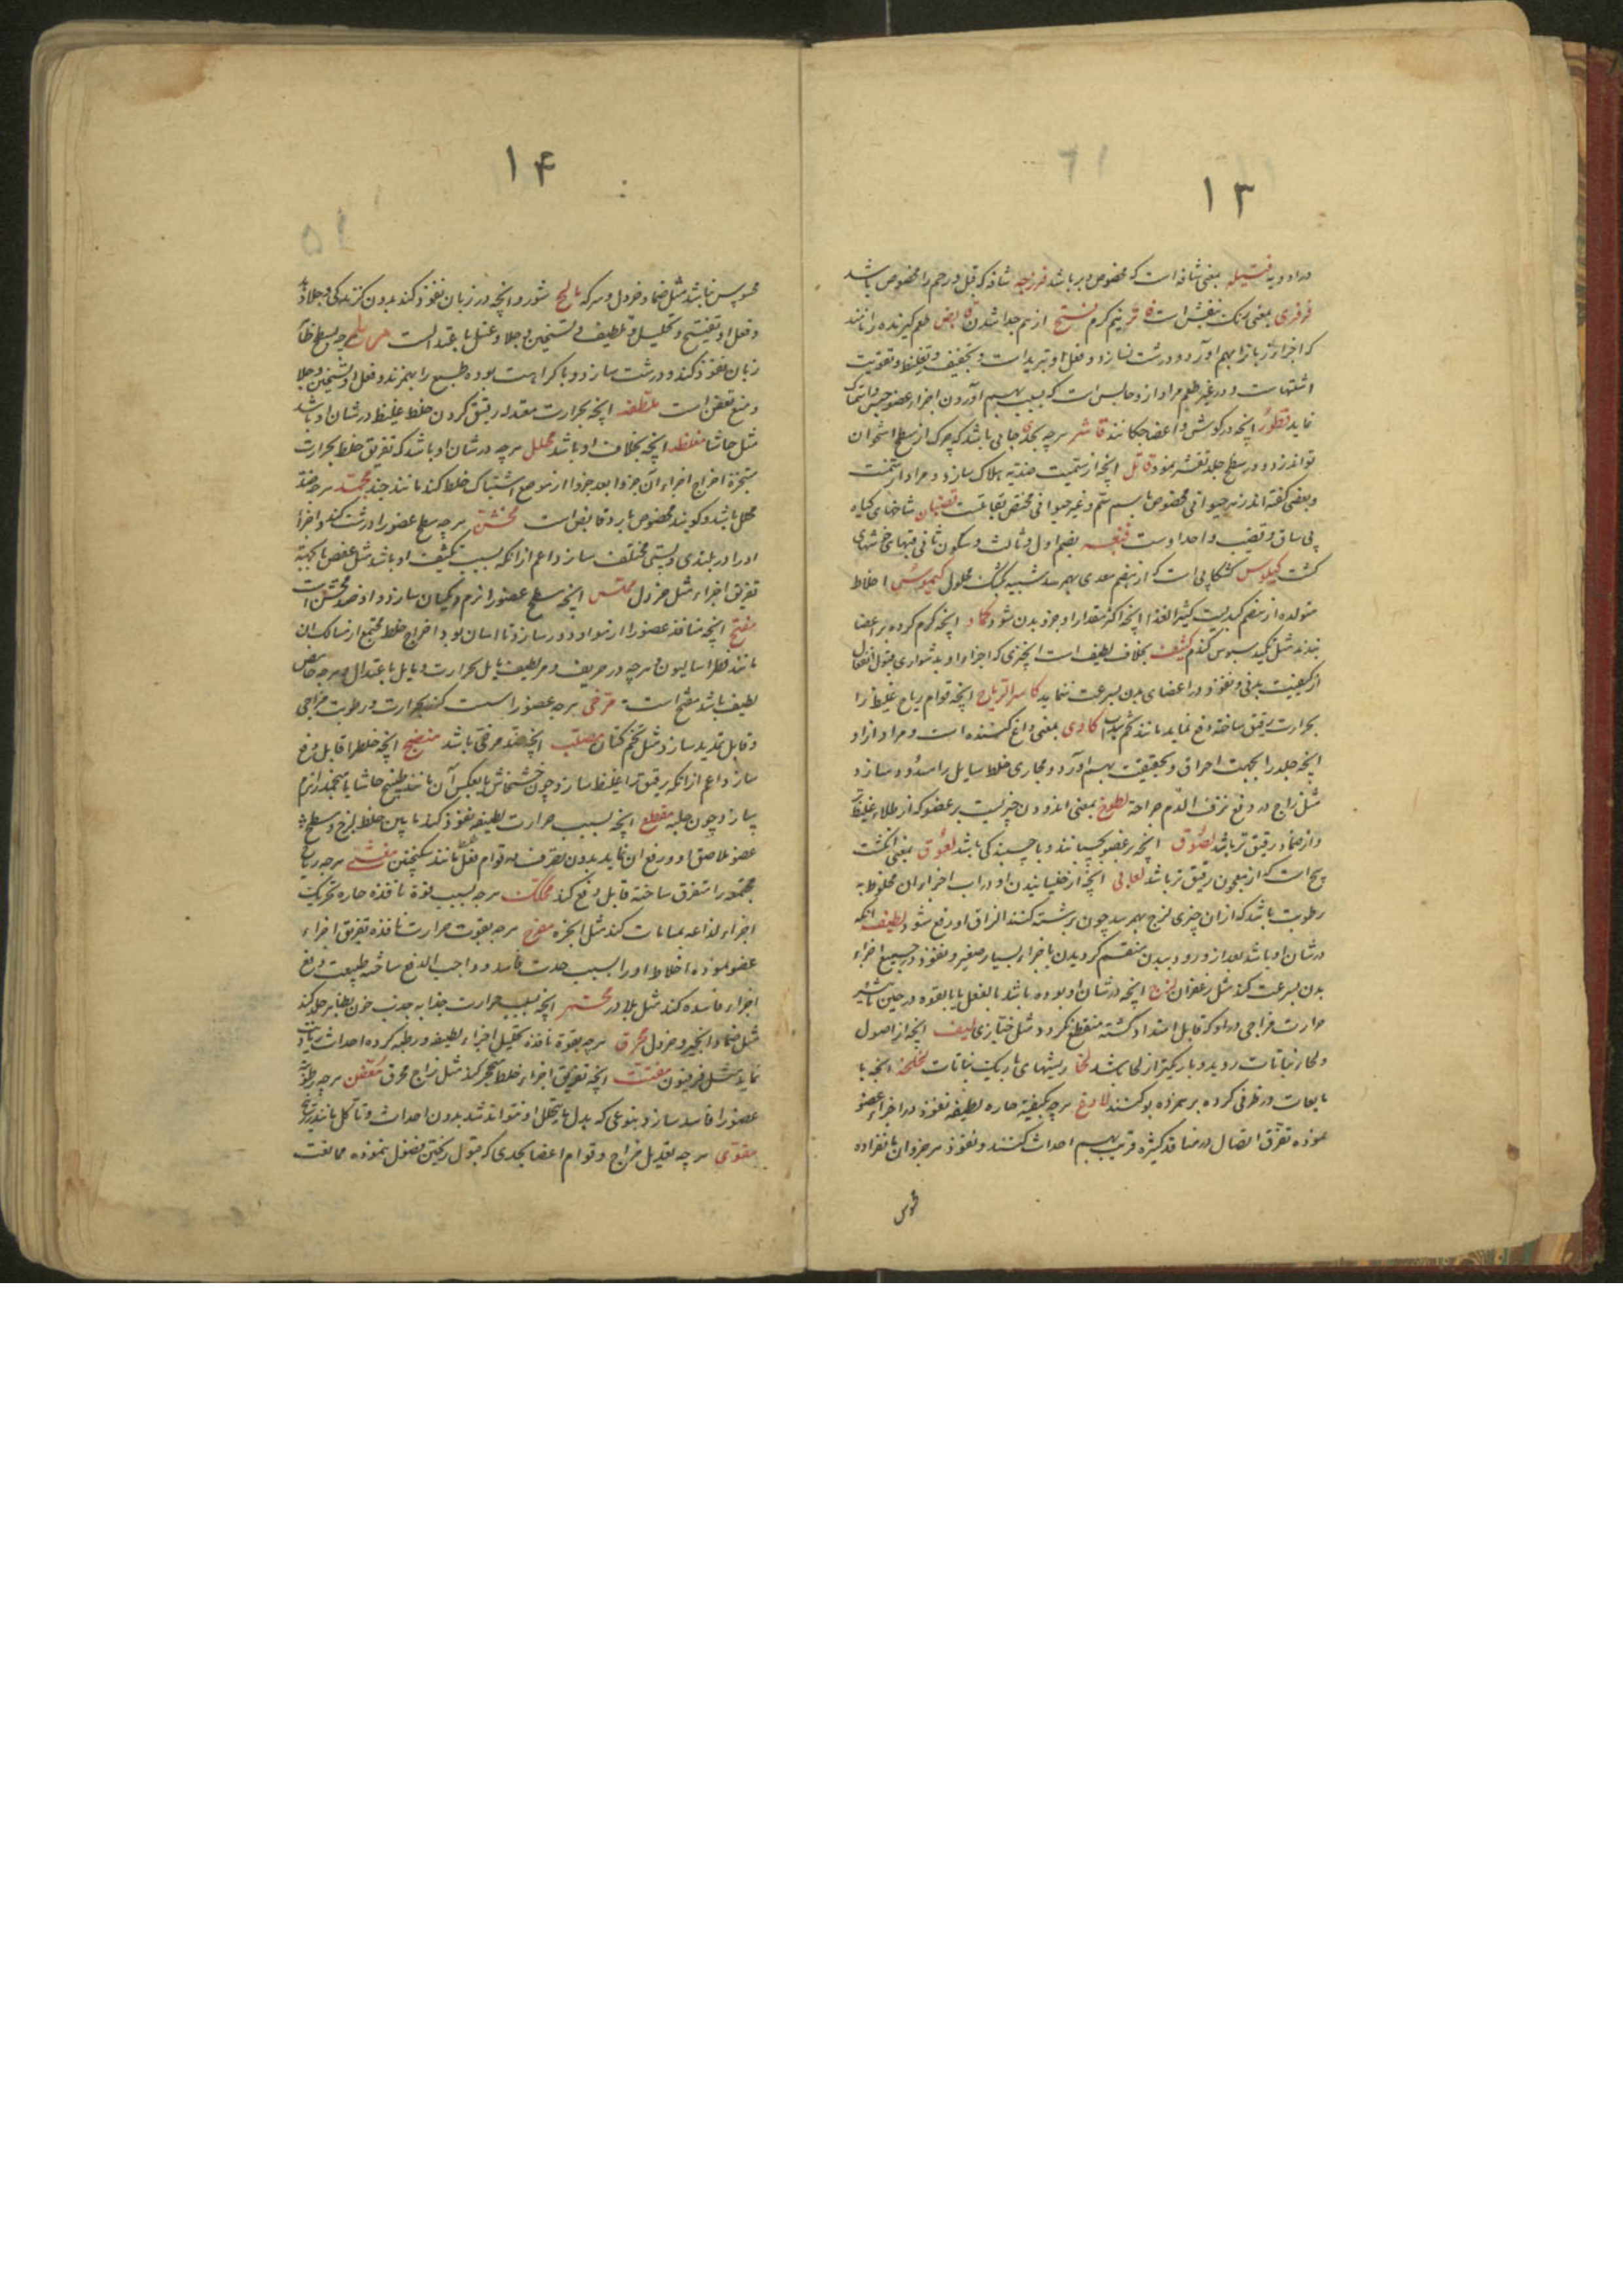 ۱۳
در ادویه فتیله بمعنی شافه است که مخصوص دبر باشد فرزجه شافه که قبل و رحم را مخصوص باشد
فرفری بمعنی رنگ بنفش است فاتر نیم گرم فسخ از هم جدا شدن قابض طعم گیرنده زبان مانند
که اجزاء زبانرا بهم آورد و درشت نسازد و فعل او تبرید است و تجفیف و تغلیظ و تقویت
اشتهاست و در غیر طعم مراد از و حابس است که بسبب بهم آوردن اجزاء عضو حبس و امساک
نماید قطور آنچه در گوش و اعضا چکانند قاشر هرچه بحدی جالی باشد که چرک از سطح استخوان
تواند زدود و سطح جلد تقشر نمود قاتل آنچه از سمیت ضدیه هلاک سازد و مراد از سمست
و بعضی گفته اند زهر حیوانی مخصوص باسم سم و غیر حیوانی مختص بقاتلست قضبان شاخهای گیاه
بی ساق و قضیب واحد اوست بضم اول و ثالث و سکون ثانی
کیلوس کشکابی است که از هضم معدی بهم رسد شبیه بکشک محلول کیموس اخلاط
متولده از هضم کبدیست کثیر الغذا آنچه اکثر مقدار او جزو بدن شود کماد آنچه گرم کرده بر اعضا
بندند مثل تکمید سبوس گندم کثیف بخلاف لطیف است آنچیزی که اجزاء او بدشواری قبول انفعال
از کیفیت بدنی و نفوذ در اعضای بدن بسرعت ننماید کاسر الریاح آنچه قوام ریاح غلیظ را
بحرارت رقیق ساخته دفع نماید مانند تخم سداب کاوی بمعنی داغ کننده است و مراد از او
آنچه جلد را بجهت احراق و تجفیف بهم آورد و مجاری خلط سایل را مسدود سازد
مثل زاج در دفع نزف الدم جراحة لطوخ بمعنی اندودن چیزیست بر عضو که از طلاء غلیظ
و از ضماد رقیق تر باشد لصوق آنچه بر عضو بچسبانند و با چسبندگی باشد لعوق بمعنی انگشت
پیچ است که از معجون رقیق تر باشد لعابی آنچه از خیسانیدن او در آب اجزاء آن مخلوط به
رطوبت باشد که از آن چیزی لزج بهم رسد چون برشته کنند الزاق او رفع شود لطیف آنکه
در شان او باشد بعد از ورود ببدن منقسم گردیدن باجزاء بسیار صغیر و نفوذ در جمیع اجزاء
بدن بسرعت کند مثل زعفران لزج آنچه در شان او بوده باشد بالفعل یا بالقوه در حین تاثیر
حرارت مزاجی در او که قابل امتداد گشته منقطع نگردد مثل خبازی لیف آنچه از اصول
و کنار نباتات روید و باریکتر از لحا باشد لحا ریشهای باریک نباتات لخلخه آنچه با
مایعات در ظرفی کرده بر هم زده بو کنند لاذع هرچه بکیفیة حاره لطیفه نفوذ در اجزاء عضو
نموده تفرق اتصال در منافذ کثیره قریب بهم احداث کنند و نفوذ هر جزو آن بانفراده
۱۴
محسوس نباشد مثل ضماد خردل و سرکه مالح شور و آنچه در زبان نفوذ کند بدون گزندگی و جلا دهد
و فعل او تفتیح و تحلیل و تلطیف و تسخین و جلا و غسل باعتدالست مر تلخ و هرچه بسطح ظاهر
زبان نفوذ کند و درشت سازد و با کراهت بوده طبع را بهم زند و فعل او تسخین و جلا
و منع تعفن است ملطفه آنچه بحرارت معتدله رقیق کردن خلط غلیظ در شان او باشد
مثل حاشا مغلظه آنچه بخلاف او باشد محلل هرچه در شان او باشد که تفریق خلط بحرارت
بتبخیر و اخراج اجزاء آن جزو بعد جزو از موضع اشتباک خلط کند مانند جند مجمد هرچه ضد
محلل باشد و گویند مخصوص بارد و قابض است مخشن هرچه سطح عضو را درشت کند و اجزاء
او را در بلندی و پستی مختلف سازد اعم از آنکه بسبب تکثیف او باشد مثل عفص یا بجهة
تفریق اجزاء مثل خردل مملس آنچه سطح عضو را نرم و یکسان سازد و او ضد مخشن است
مفتح آنچه منافذ عضو را از مواد دور سازد تا آسان بود اخراج خلط مجتمع از مسالک آن
مانند فطراسالیون و هرچه در حریف و مر لطیف مایل بحرارت و مایل باعتدال و هرچه حامض
لطیف باشد مفتح است مرخی هرچه عضو را سست کند بحرارت و رطوبت مزاجی
و قابل تمدید سازد مثل تخم کتان مصلب آنچه ضد مرخی باشد منضج آنچه خلط را قابل دفع
سازد اعم از آنکه رقیق را غلیظ سازد چون خشخاش یا بعکس آن مانند طبیخ حاشا یا منجمد را نرم
سازد چون حلبه مقطع آنچه بسبب حرارت لطیفه نفوذ کند مابین خلط لزج و سطح
عضو ملاصق او و رفع آن نماید بدون تصرف در قوام خلط مانند سکنجبین مفشی هرچه ریاح
مجتمعه را متفرق ساخته قابل دفع کند محکک هرچه بسبب قوة نافذه حاره تحریک
اجزاء لذاعه بمسامات کند مثل انجره مقرح هرچه بقوت حرارت نافذه تفریق اجزاء
عضو نموده اخلاط او را بسبب حدت فاسد و واجب الدفع ساخته طبیعت دفع
اجزاء فاسده کند مثل بلادر محمر آنچه بسبب حرارت جذابه جذب خون بظاهر جلد کند
مثل ضماد انجیر و خردل محرق هرچه بقوة نافذه تحلیل اجزاء لطیفه و رطبه کرده احداث رمادیت
نماید مثل فرفیون مفتت آنچه تفریق اجزاء خلط متحجر کند مثل زجاج محرق معفن هرچه رطوبت
عضو را فاسد سازد بنوعی که بدل مایتحلل او نتواند شد بدون احداث تاکل مانند زرنیخ
مقوی هرچه تعدیل مزاج و قوام اعضا بحدی که قبول ریختن فضول ننموده ممانعت